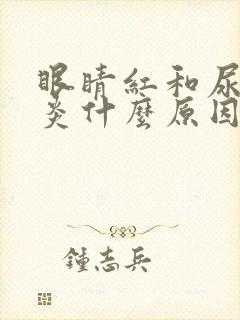 眼睛紅和尿
炎什麼原因
鍾志兵